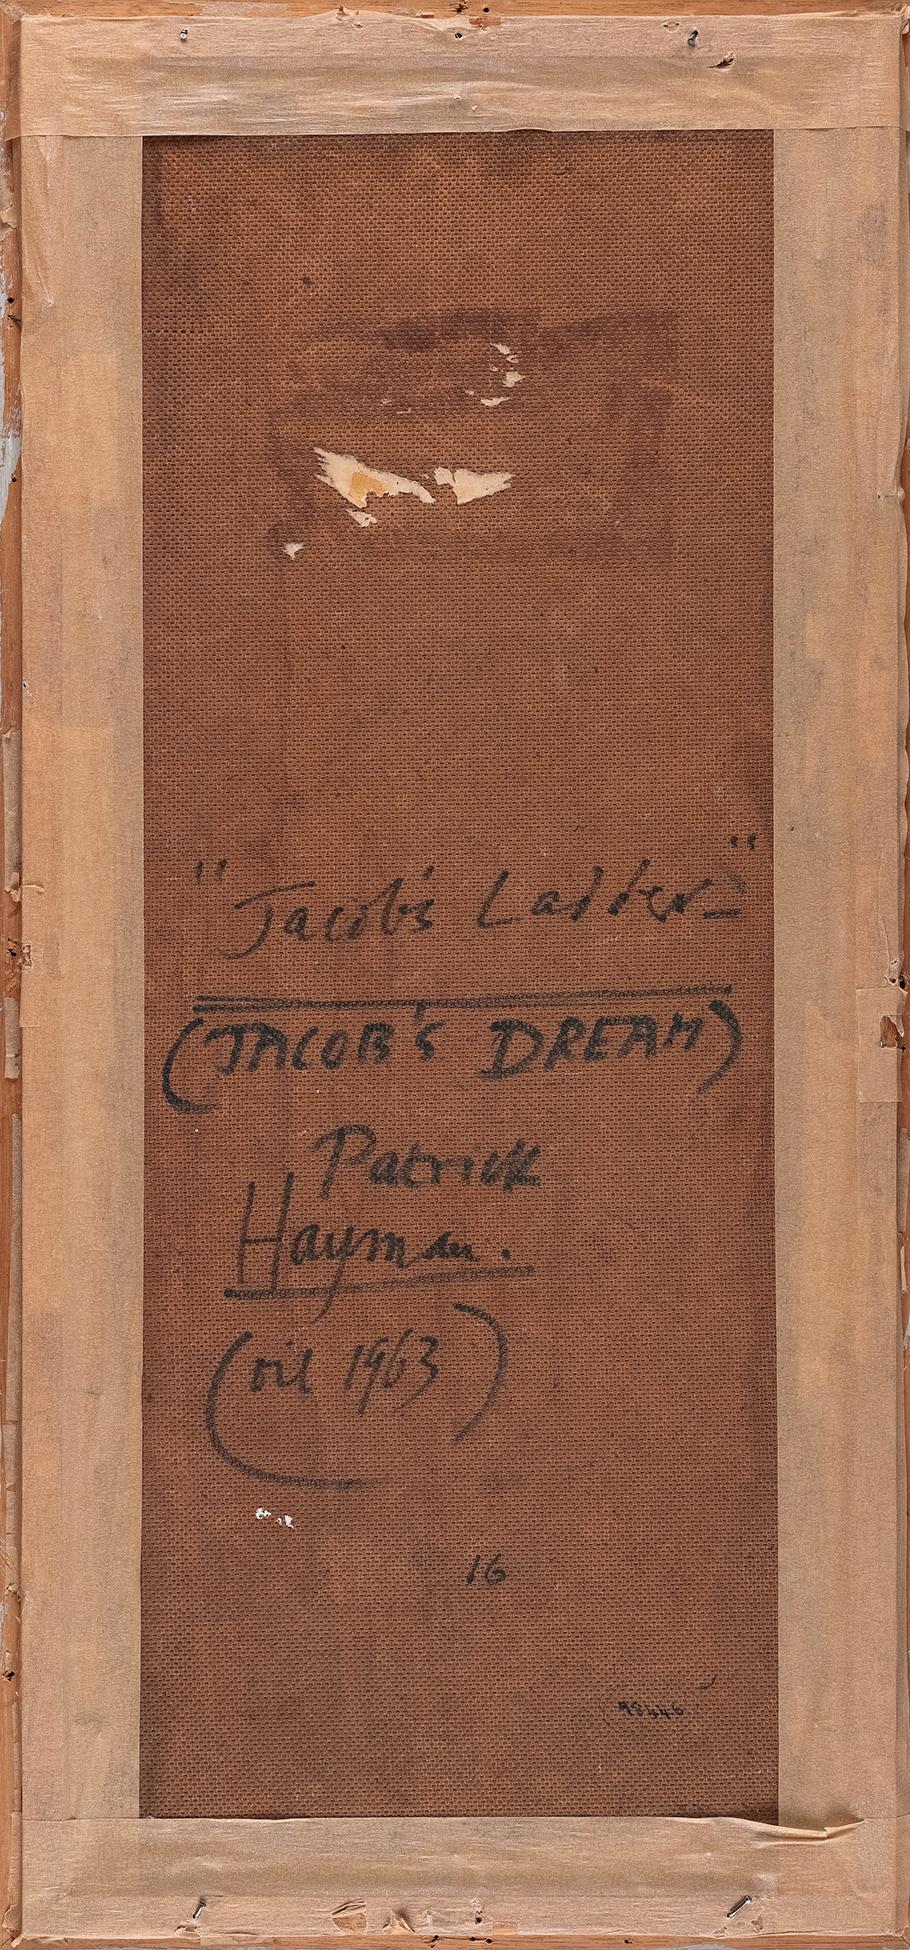 "Jacob's Ladder"
(JACOB'S DREAM)
Patrick
Hayman.
(oil 1963)
16
98446